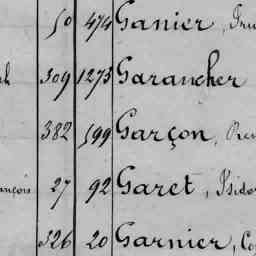 50 474 Ganier,
309 1273 Garancher
382 599 Garçon, Ren
ançois 27 92 Garet, Isido
326 20 Garnier, Co